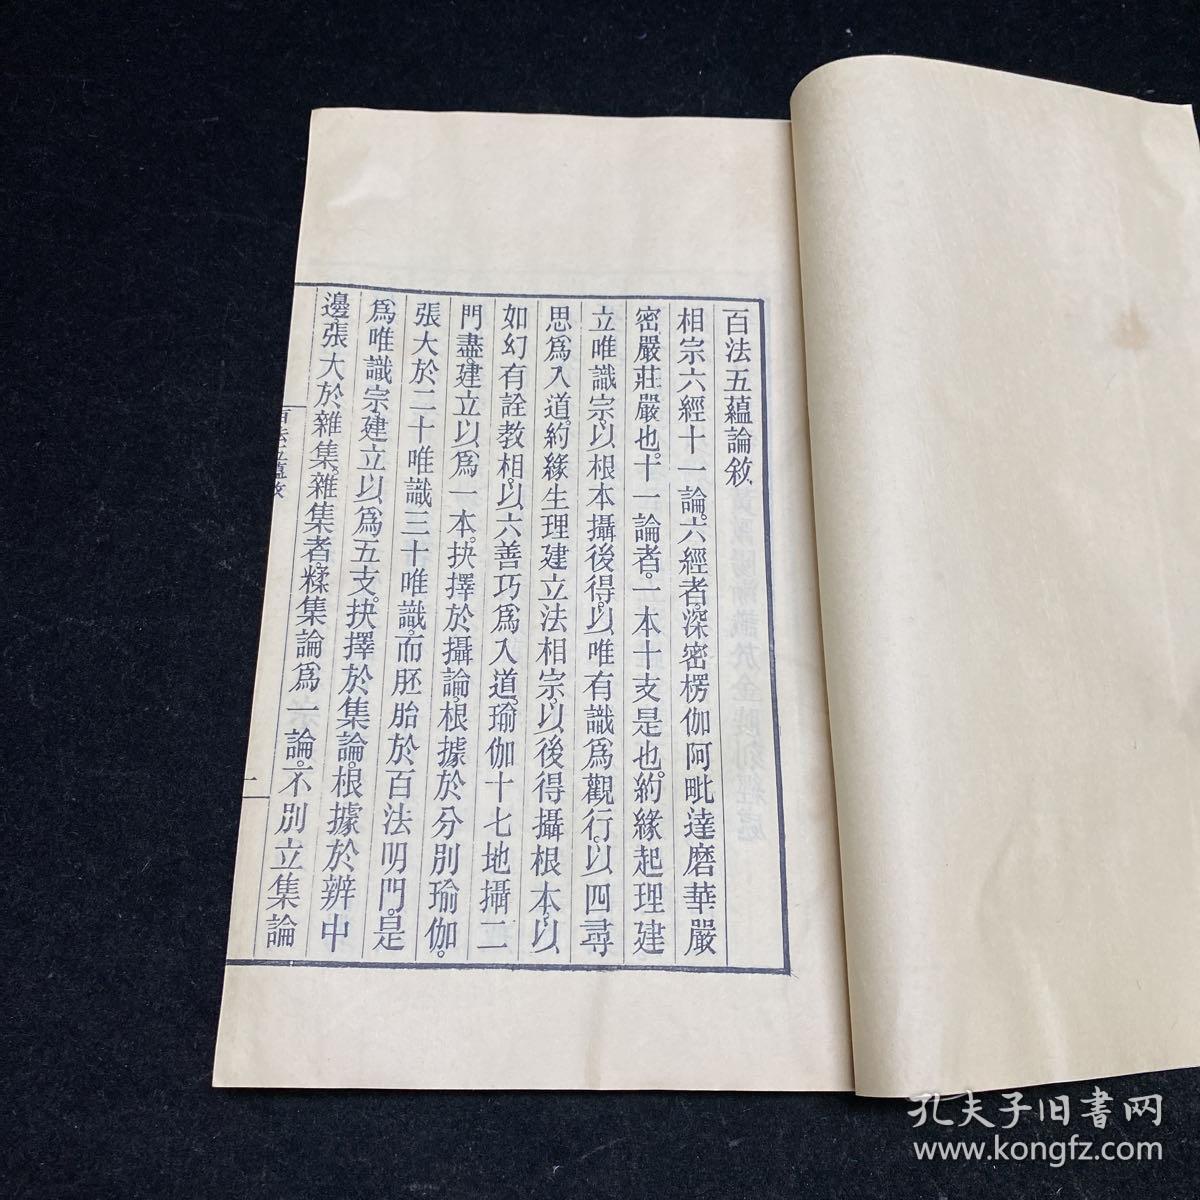 百法五蘊論敘
相宗六經十一論。六經者。深密楞伽阿毗達磨華嚴
密嚴莊嚴也。十一論者。一本十支是也。約緣起理建
立唯識宗。以根本攝後得。以唯有識爲觀行。以四尋
思爲入道。約緣生理建立法相宗。以後得攝根本。以
如幻有詮教相。以六善巧爲入道。瑜伽十七地攝二
門盡。建立以爲一本。抉擇於攝論。根據於分別瑜伽。
張大於二十唯識三十唯識。而胚胎於百法明門。是
爲唯識宗。建立以爲五支。抉擇於集論。根據於辨中
邊。張大於雜集。雜集者。糅集論爲一論。不別立集論
百法五蘊敘
一
孔夫子旧書网
www.kongfz.com